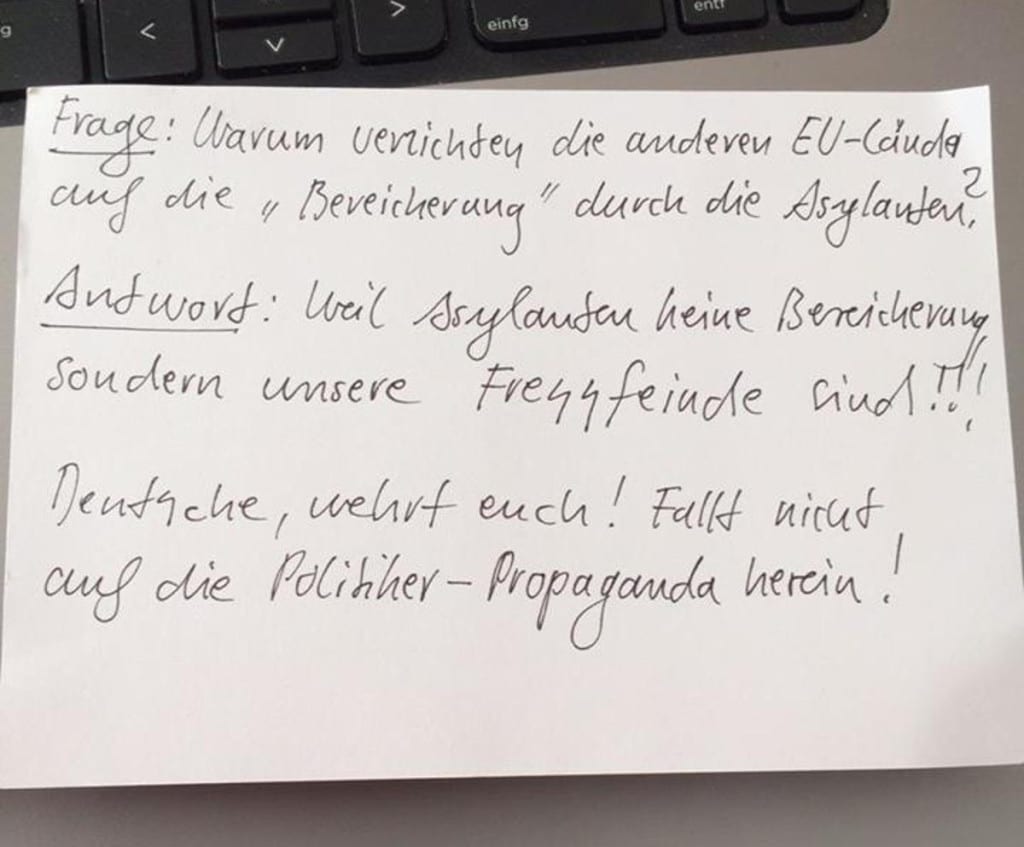 g
<
>
einfg
entf
v
Frage: Warum verzichten die anderen EU-Länder
auf die „Bereicherung" durch die Asylanten?
Antwort: Weil Asylanten keine Bereicherung,
sondern unsere Fressfeinde sind!!!
Deutsche, wehrt euch! Fallt nicht
auf die Politiker-Propaganda herein!